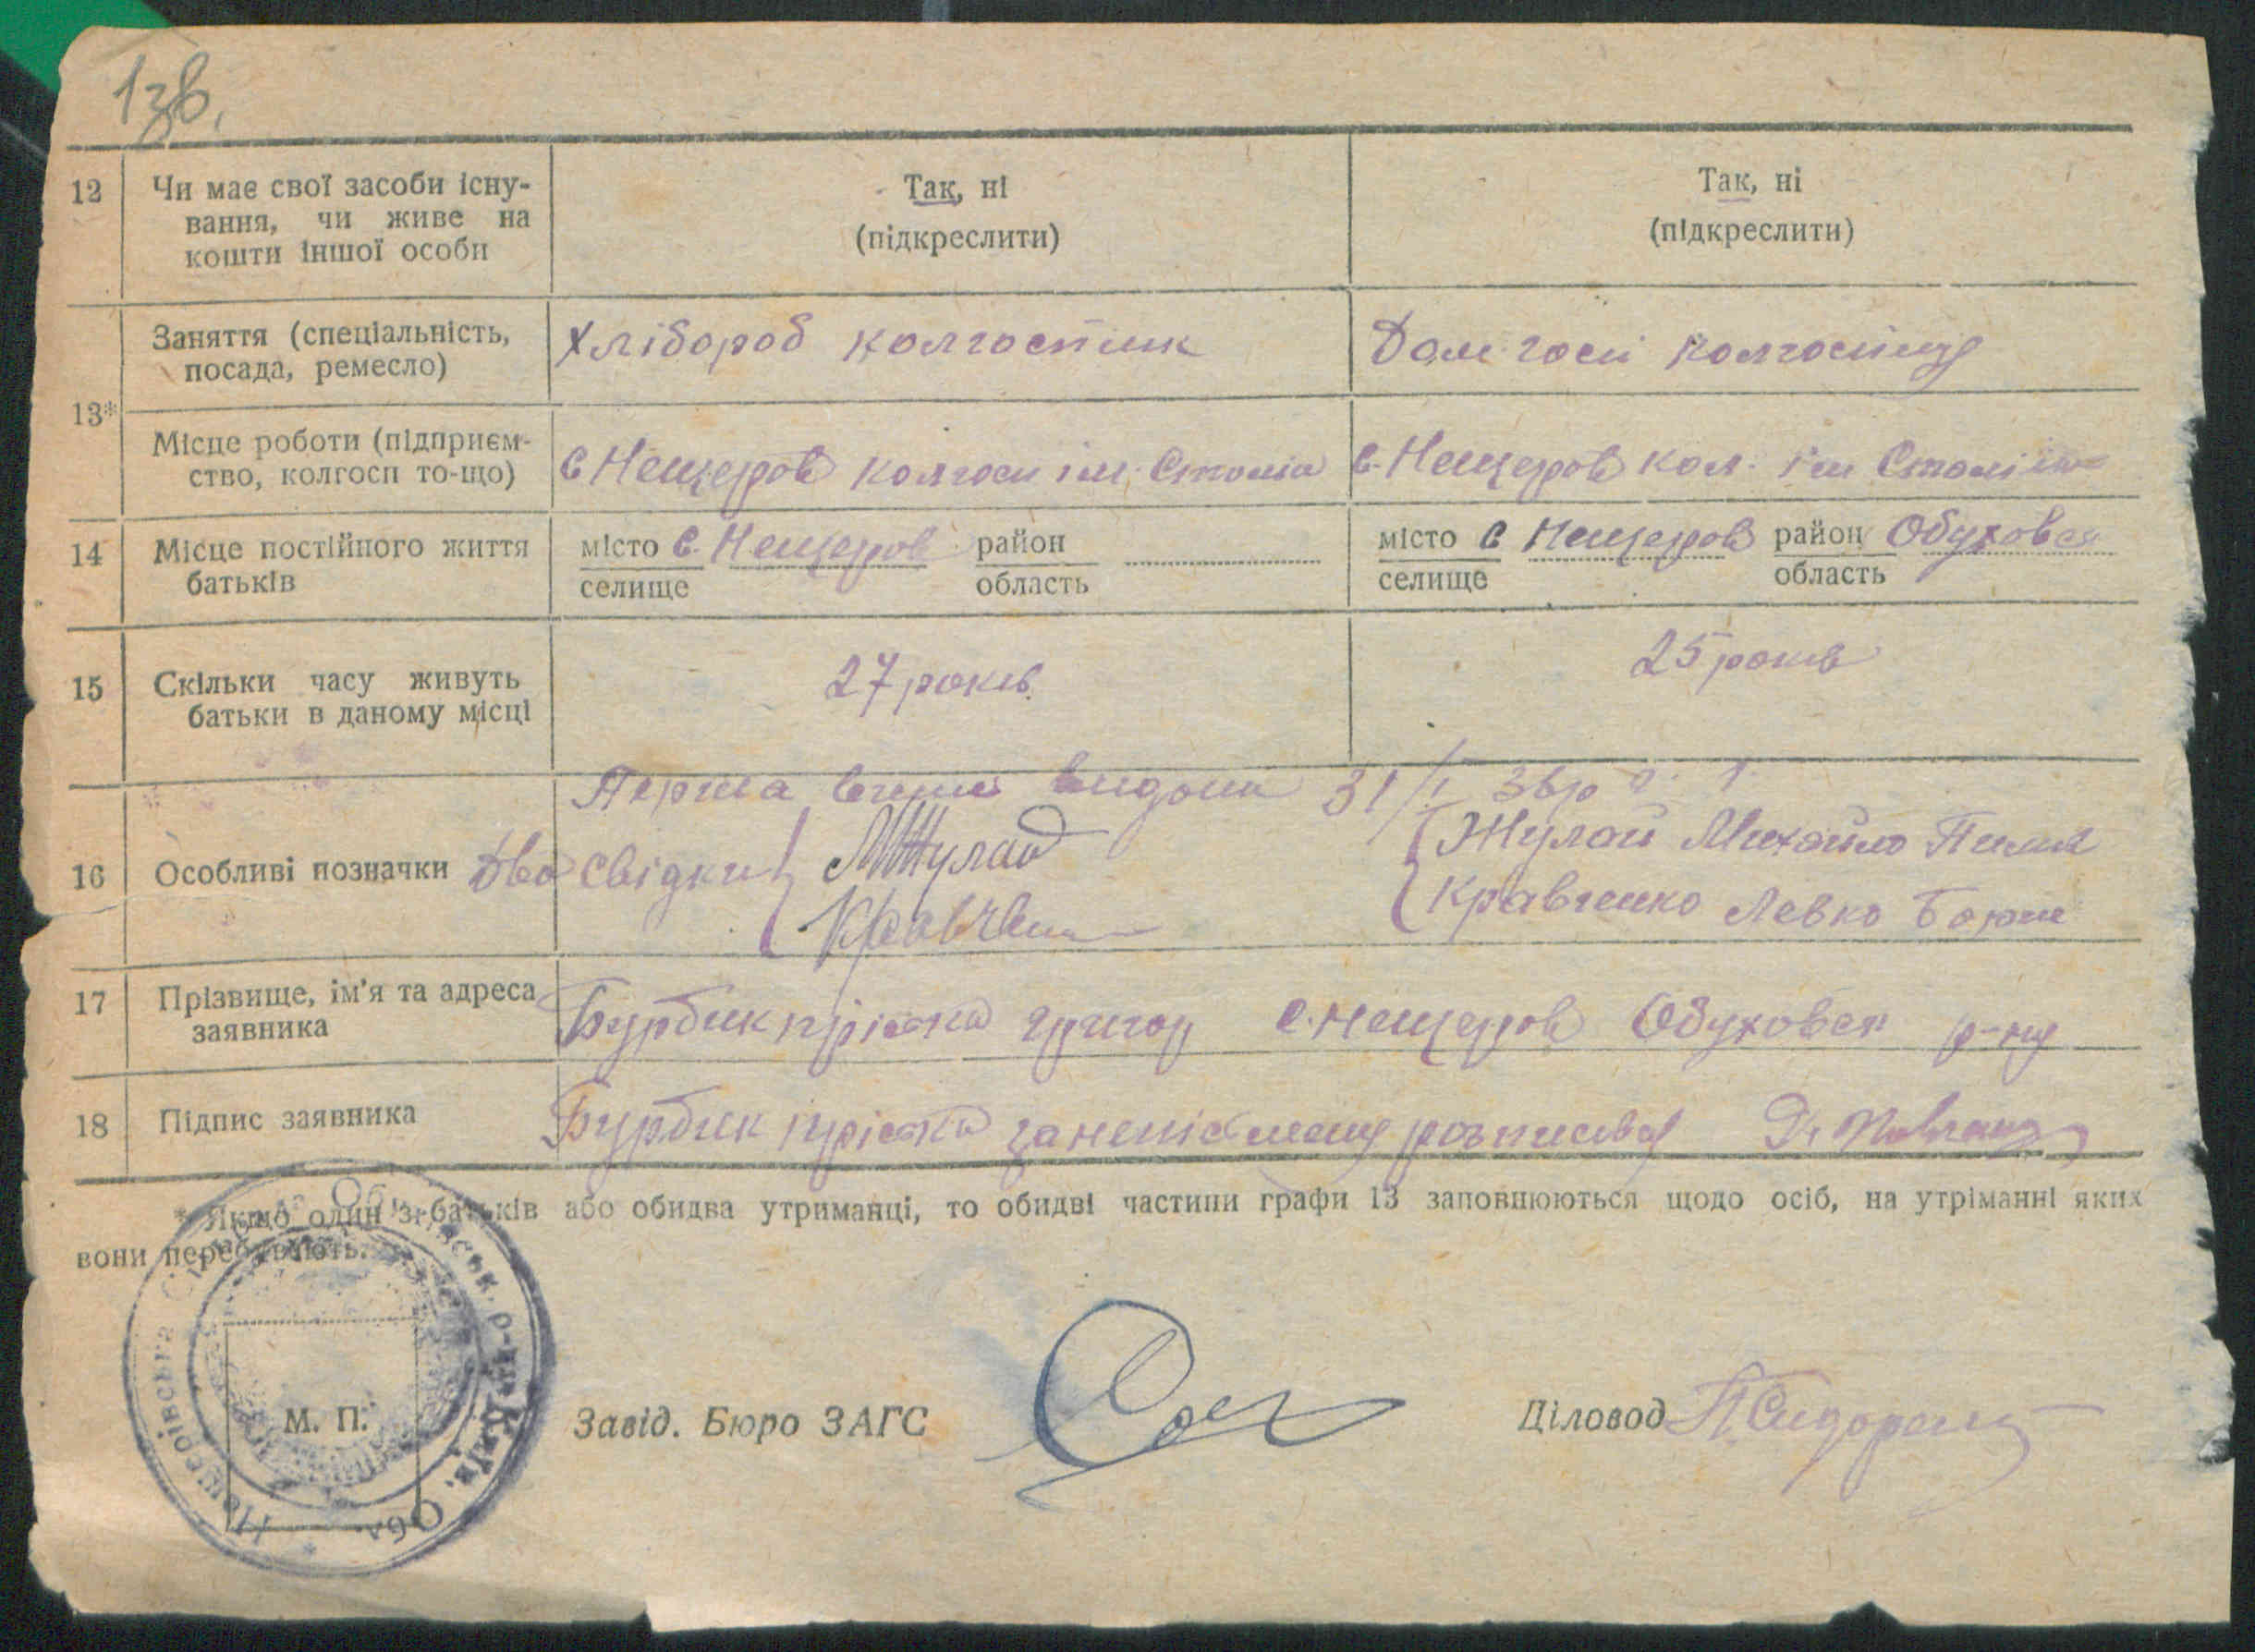 13в.
12 Чи має свої засоби існу-
вання, чи живе на
кошти іншої особи
Так, ні
(підкреслити)
Так, ні
(підкреслити)
13*
Заняття (спеціальність,
посада, ремесло)
Хлібороб колгоспник
Дом госп колгоспу
Місце роботи (підприєм-
ство, колгосп то-що)
с Нещеров колгосп ім. Сталіна
с. Нещеров кол. ім Сталіна
14 Місце постійного життя
батьків
місто с. Нещеров район
селище область
місто с Нещеров район Обуховск
селище область
15 Скільки часу живуть
батьки в даному місці
27 років
25 років
Перша видана 31/I 36р
16 Особливі позначки Два свідки
МЖулай
Кравчен
Жулай Михайло Пилип
Кравченко Левко Борис
17 Прізвище, ім'я та адреса
заявника
Бурбик пріська григор с. нещеров Обуховск р-ну
18 Підпис заявника
Бурбик пріська за неписьмену розписався
* Якщо один з батьків або обидва утриманці, то обидві частини графи 13 заповнюються щодо осіб, на утріманні яких
вони перебувають.
Нещерівська Обухівськ. р-ну Київ. Обл.
М. П.
Завід. Бюро ЗАГС
Діловод П Сидорен